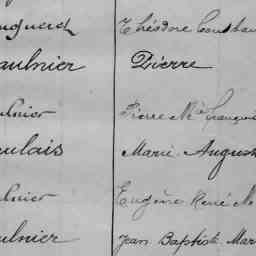 Théodore Constan
aulnier Pierre
ulnier Pierre Me françois
ulais Marie August
ulnier Eugène René M
ulnier Jean Baptiste Mar